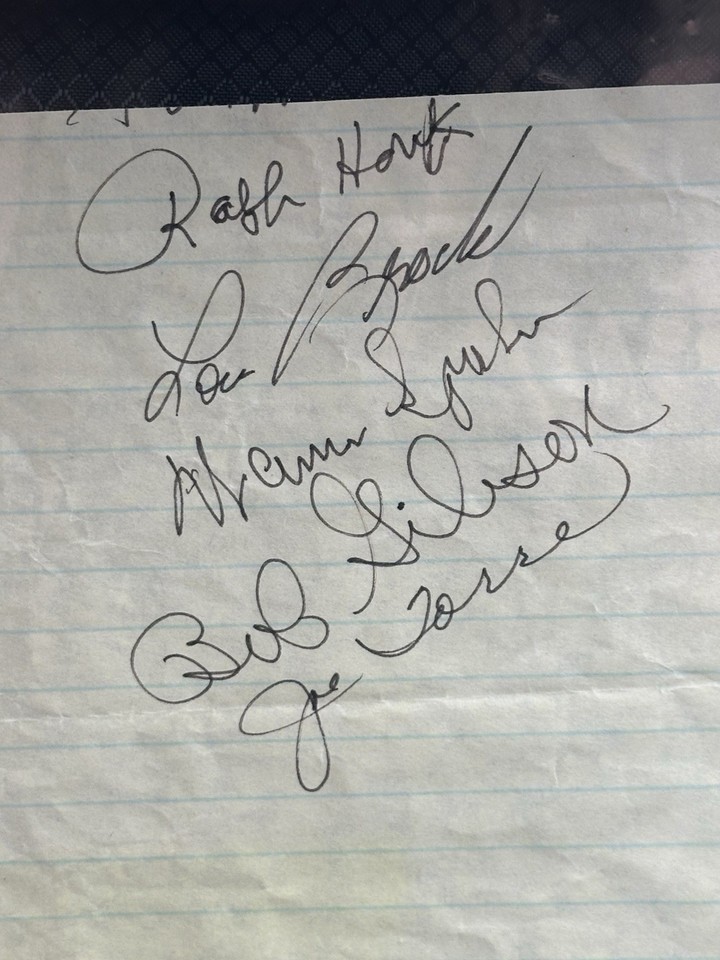 Ralph Houk
Lou Brock
Warren Spahn
Bob Gibson
Joe Torre